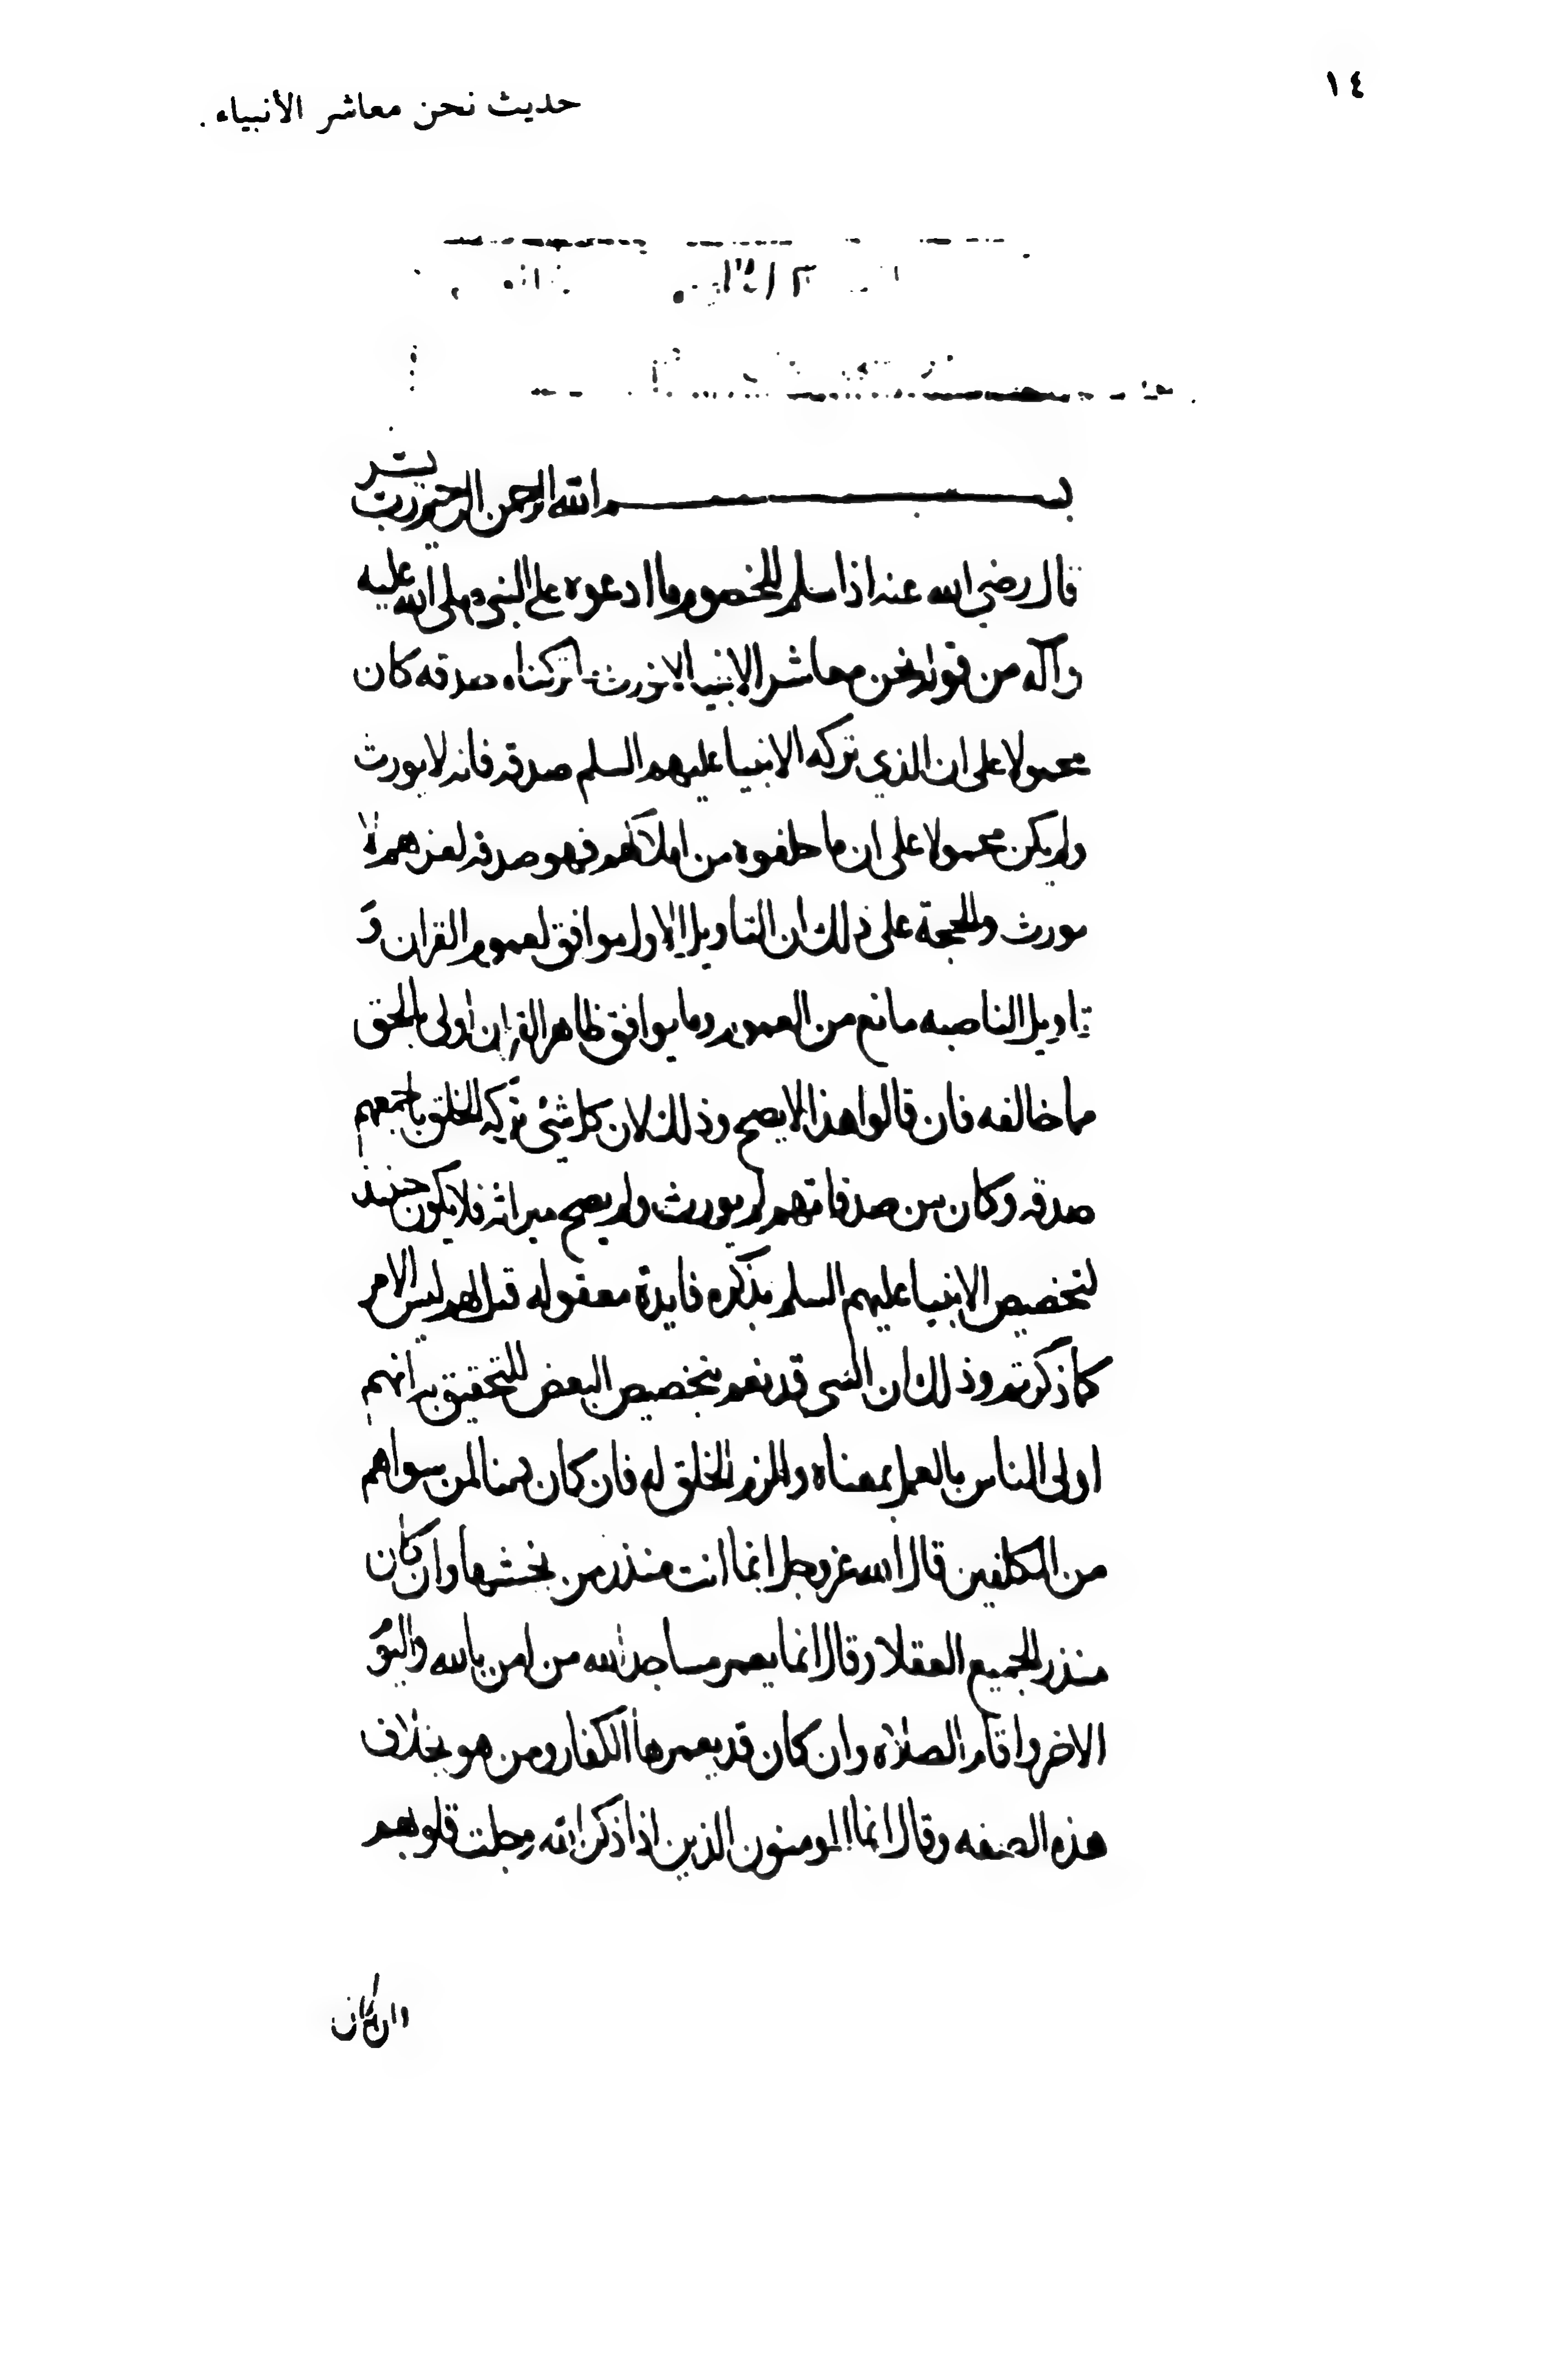 ١٤
حديث نحن معاشر الأنبياء .
بسم الله الرحمن الرحيم رب يسر
قال رضي الله عنه اذا سلم للخصوم ما ادعوه على النبي صلى الله عليه
وآله من قوله نحن معاشر الانبيا لا نورث ما تركناه صدقه كان
محمولا على ان الذي تركه الانبيا عليهم السلم صدقه فانه لا يورث
ولم يكن محمولا على ان ما خلفوه من املاكهم فهو صدقه لغيرهم لا
يورث والحجة على ذلك ان التاويل الاول موافق لعموم القران و
تاويل الناصبه مانع من العموم وما يوافق ظاهر القران اولى بالحق
مما خالفه فان قالوا هذا لا يصح وذلك لان كل شئ تركه الخلق باجمعهم
صدقه وكان من صدقاتهم لم يورث ولم يصح ميراثه فلا يكون حينئذ
لتخصيص الانبيا عليهم السلم بذكره فايدة معقوله قيل لهم ليس الامر
كما ذكرتم وذلك ان الشى قد يعم بتخصيص البعض للتحقيق به انهم
اولى الناس بالعمل بمعناه والزم الخلق له فان كان دينا لمن سواهم
من المكلفين قال الله عز وجل انما انت منذر من يخشها وان كان
منذر لجميع العقلا وقال انما يعمر مساجد الله من امن بالله واليو
الاخر واقام الصلاه وان كان قد يعمرها الكفار ومن هو بخلاف
هذه الصفه وقال انما المومنون الذين اذا ذكر الله وجلت قلوبهم
وان كان